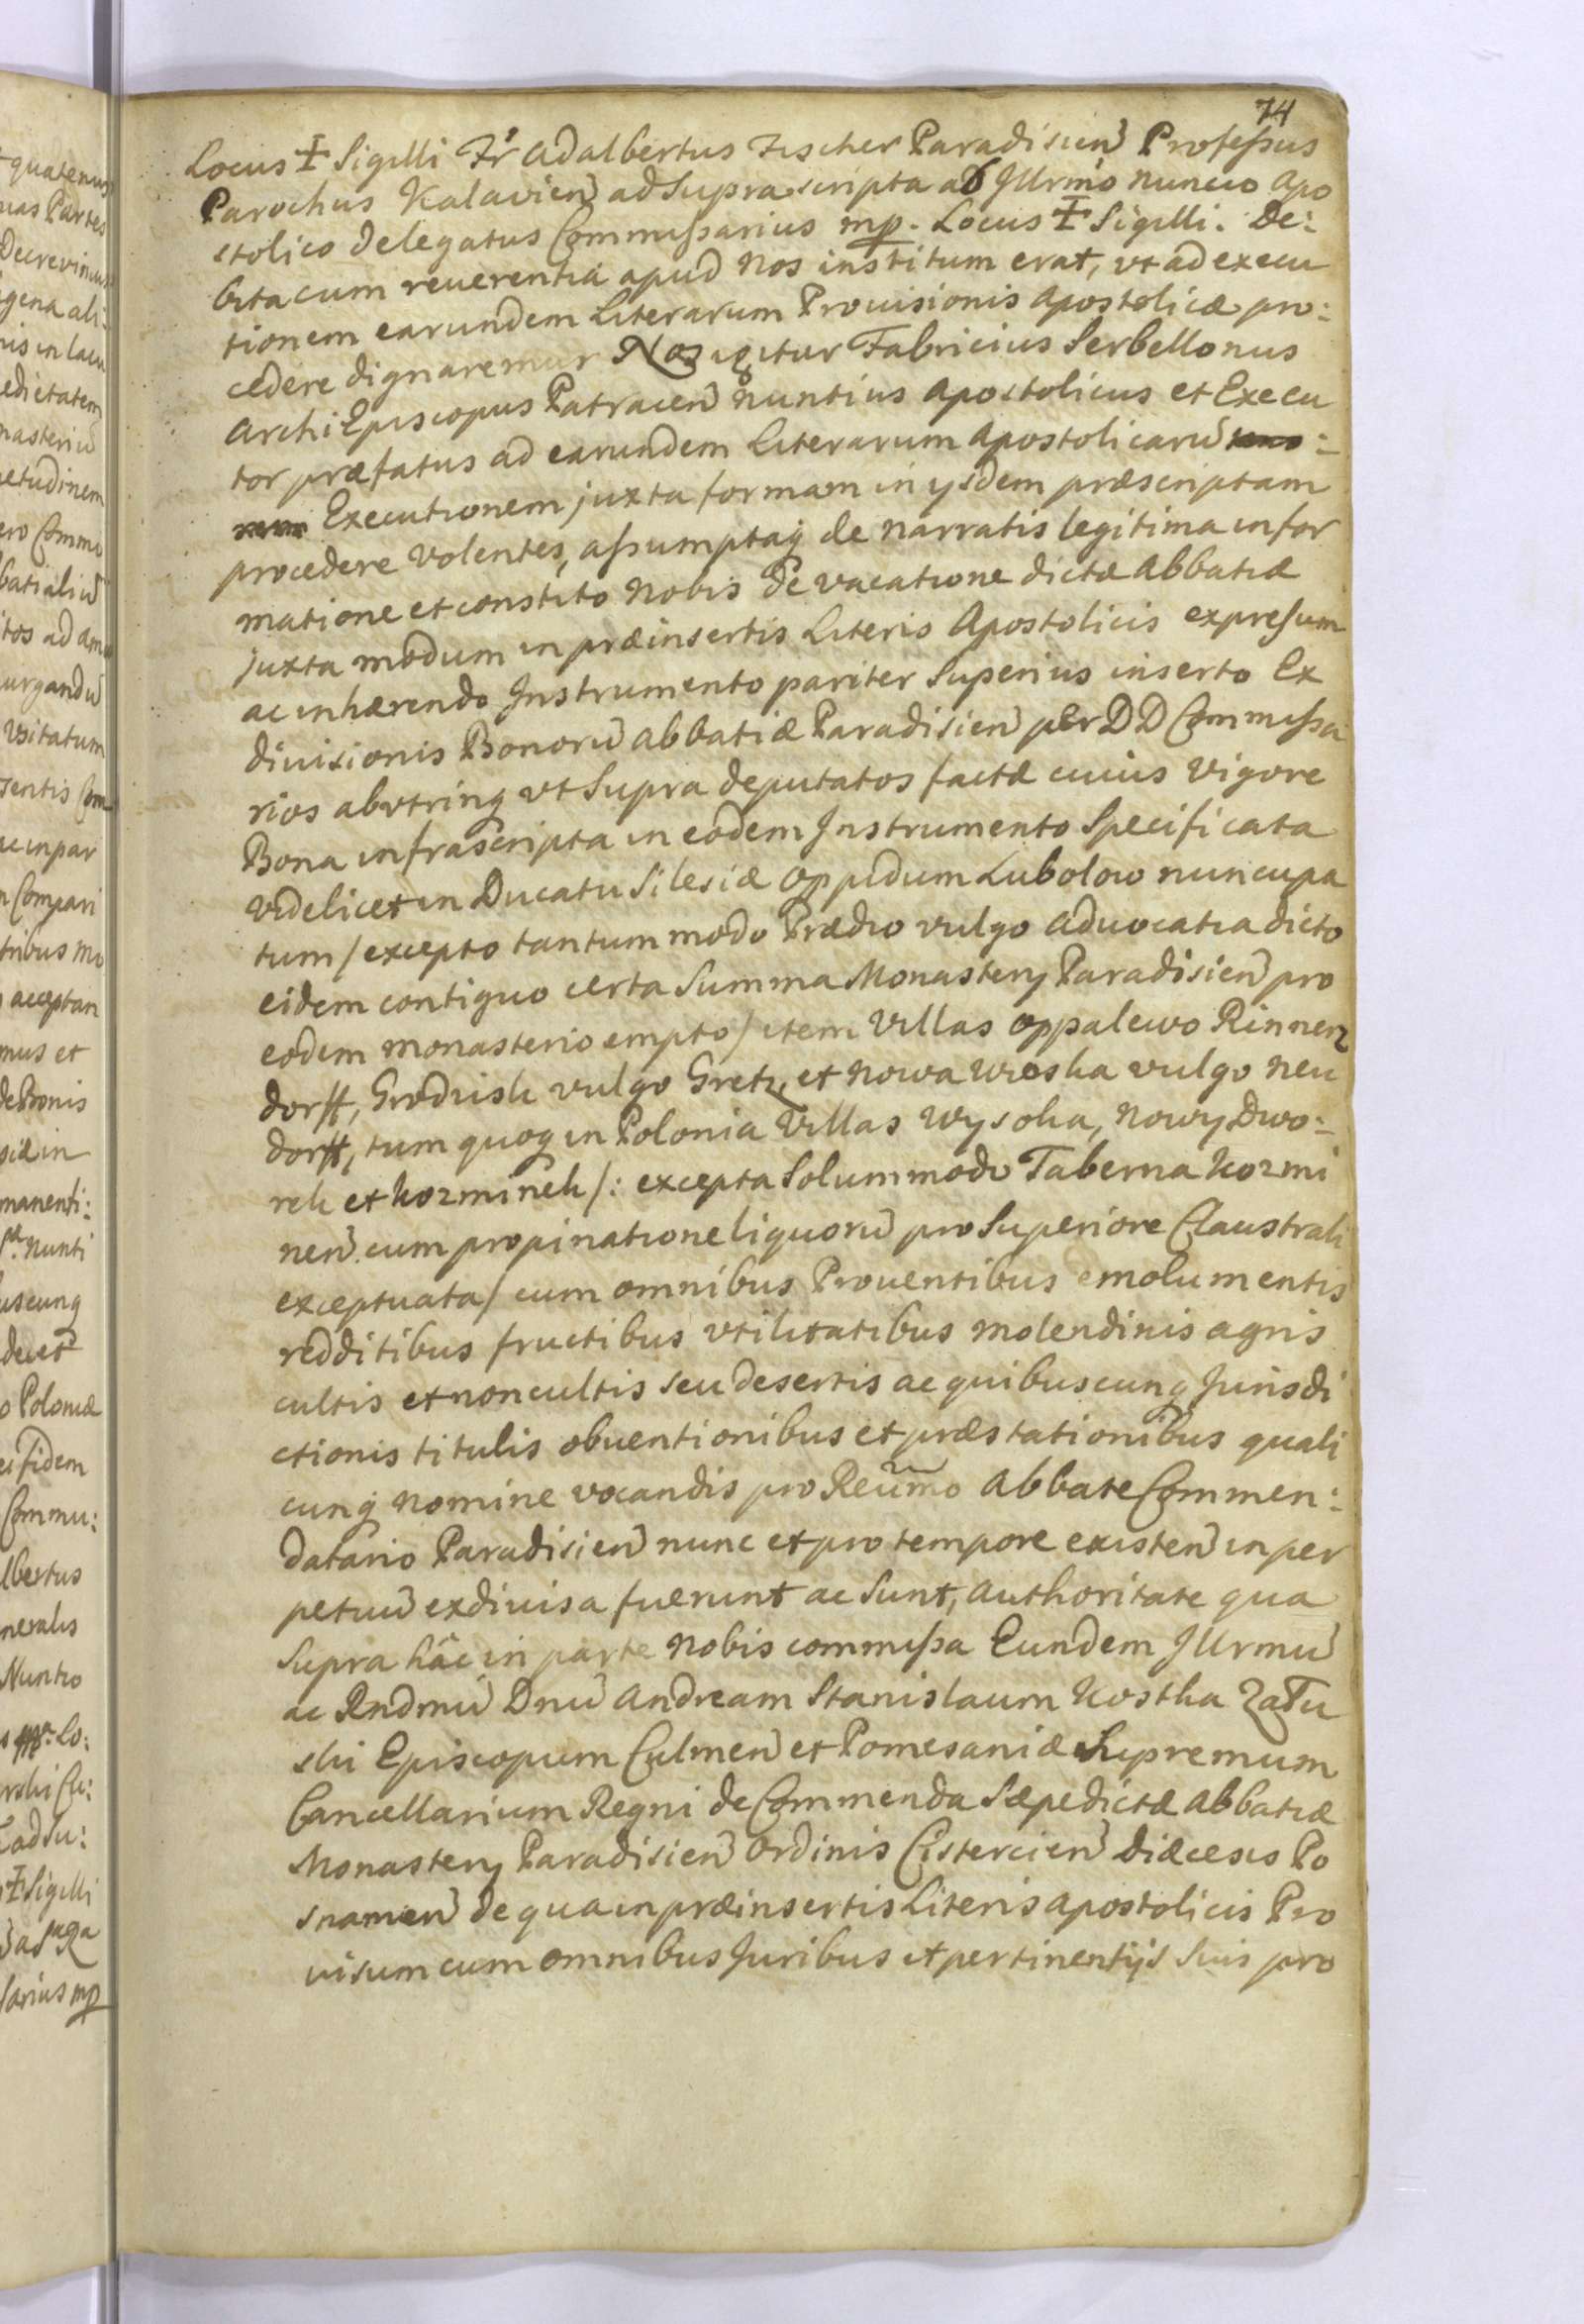 74
Locus ☩ Sigilli Fr Adalbertus Fischer Paradisien Professus
Parochus Kalavien ad suprascripta ab Illrmo Nuncio Apo
stolico delegatus Commissarius mp. Locus ☩ Sigilli. De:
bita cum reuerentia apud Nos institum erat, vt ad execu
tionem earundem Literarum Prouisionis Apostolicæ pro:
cedere dignaremur Nos igitur Fabricius Serbellonus
ArchiEpiscopus Patracen Nuntius Apostolicus et Execu
tor præfatus ad earundem Literarum Apostolicarū
Executionem juxta formam in ysdem præscriptam
procedere volentes, assumptaq de narratis legitima infor
matione et constito Nobis de vacatione dictæ Abbatiæ
juxta modum in præinsertis Literis Apostolicis expresum
ac inhærendo Instrumento pariter superius inserto Ex
diuisionis Bonorū Abbatiæ Paradisien per DD Commissa
rios abvtrinq vt supra deputatos factæ cuius vigore
Bona infrascripta in eodem Instrumento specificata
videlicet in Ducatu Silesiæ Oppidum Lubolow nuncupa
tum / excepto tantummodo Prædio vulgo Aduocatia dicto
eidem contiguo certa summa Monastery Paradisien pro
eodem monasterio empto / item Villas Oppalewo Rinnerz
dorff, Grodzisk vulgo Gretz, et Nowa Wioska vulgo Neu
dorff, tum quoq in Polonia Villas Wysoka, Nowy Dwo:
rek et Kozminek /: excepta solummodo Taberna Kozmi
nen cum propinatione liquorū pro Superiore Claustrali
exceptuata / cum omnibus Prouentibus emolumentis
redditibus fructibus vtilitatibus molendinis agris
cultis et non cultis seu desertis ac quibuscunq Jurisdi
ctionis titulis obuentionibus et præstationibus quali
cunq nomine vocandis pro Reūmo Abbate Commen:
datario Paradisien nunc et pro tempore existen in per
petuū exdiuisa fuerunt ac sunt, Authoritate qua
supra hâc in parte Nobis commissa Eundem Illrmū
ac Rndmū Dnū Andream Stanislaum Kostka Zału
ski Episcopum Culmen et Pomesaniæ Supremum
Cancellarium Regni de Commenda sæpedictæ Abbatiæ
Monastery Paradisien Ordinis Cistercien Diæcesis Po
snanien de qua in præinsertis Literis Apostolicis Pro
uisum cum omnibus Juribus et pertinentijs suis pro